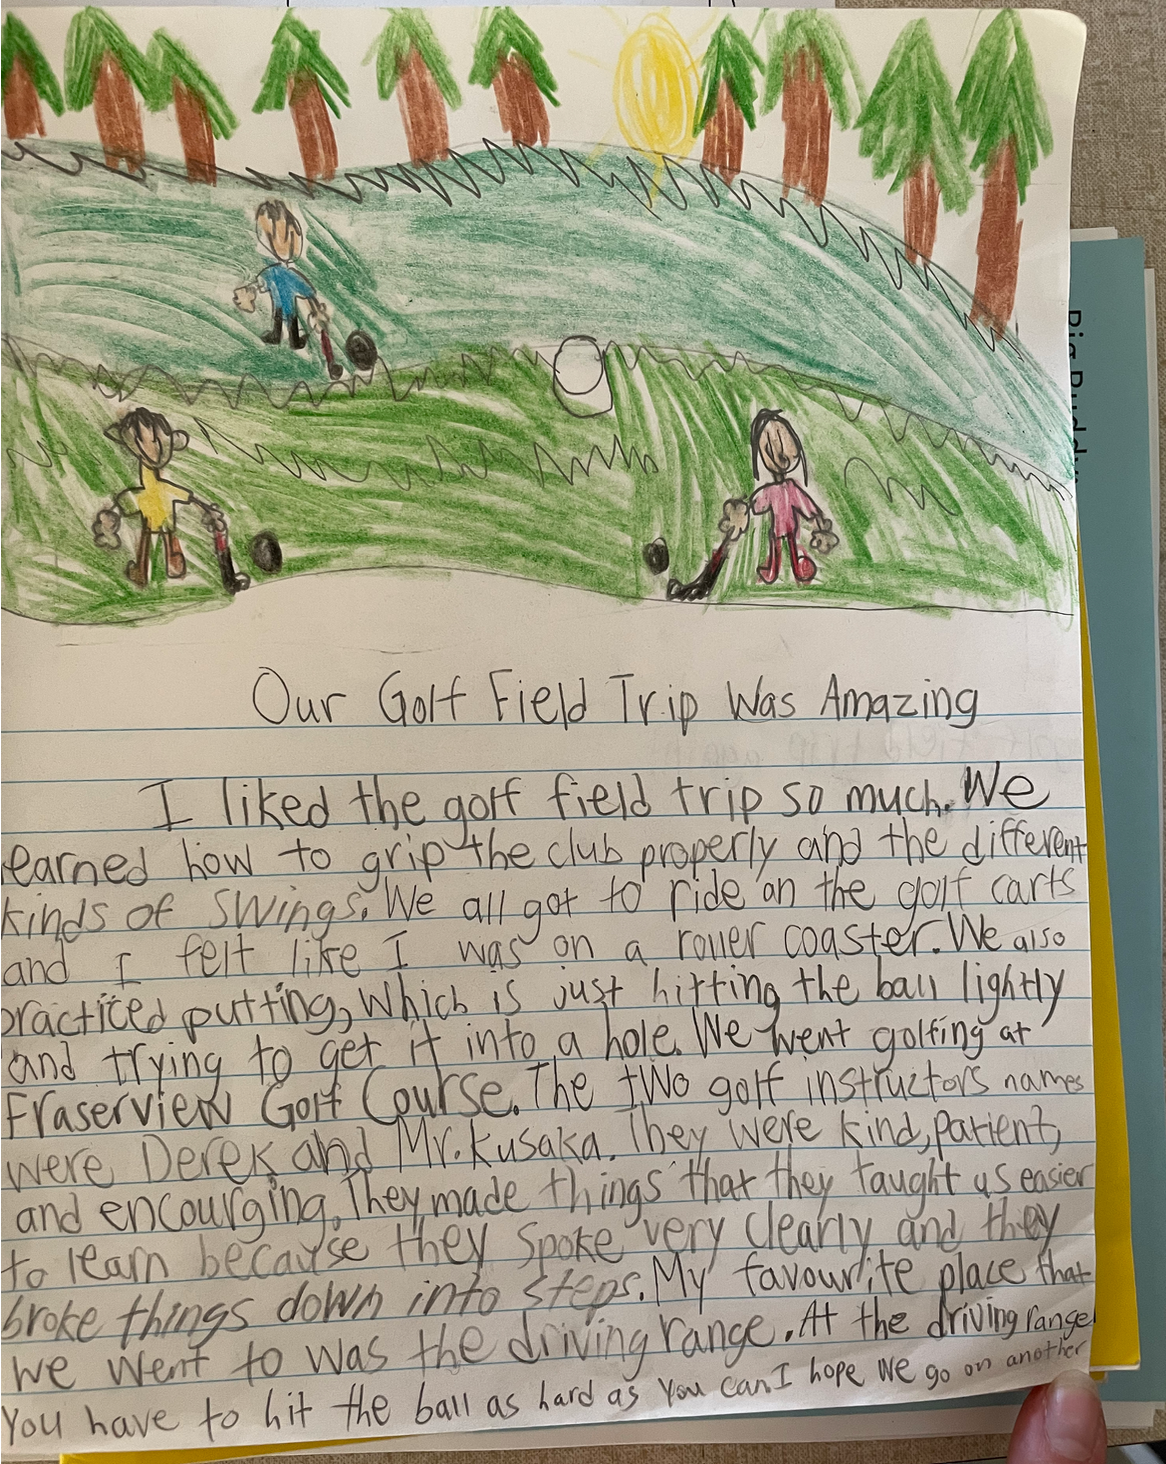 Our Golf Field Trip Was Amazing
I liked the golf field trip so much. We
earned how to grip the club properly and the different
kinds of swings. We all got to ride on the golf carts
and I felt like I was on a roller coaster. We also
practiced putting, which is just hitting the ball lightly
and trying to get it into a hole. We went golfing at
Fraserview Golf Course. The two golf instructors names
were Derek and Mr. Kusaka. They were kind, patient,
and encourging. They made things that they taught us easier
to learn because they spoke very clearly and they
broke things down into steps. My favourite place that
we went to was the driving range. At the driving range
you have to hit the ball as hard as you can. I hope we go on another